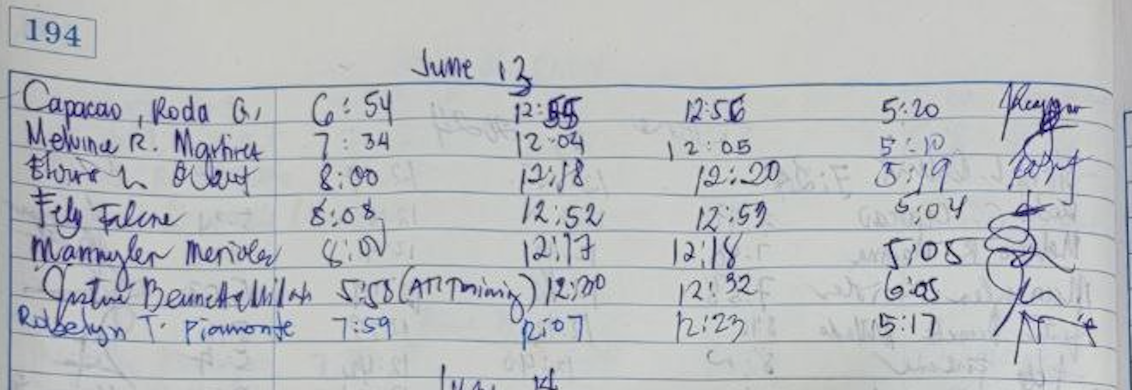 194
June 13
Capacao, Roda G, 6:54 12:55 12:56 5:20
Melvine R. Martinez 7:34 12:04 12:05 5:10
8:00 12:18 12:20 5:19
Fely Falene 8:08 12:52 12:53 5:04
Mannylen Merioles 8:00 12:17 12:18 5:05
Justine Bennette Milan 5:58 (ATI Training) 12:30 12:32 6:05
Robelyn T. Piamonte 7:59 12:07 12:23 5:17
June 14